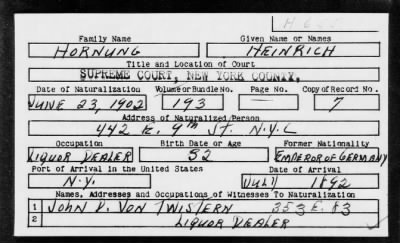 H 655
Family Name Given Name or Names
HORNUNG HEINRICH
Title and Location of Court
SUPREME COURT, NEW YORK COUNTY.
Date of Naturalization Volume or Bundle No. Page No. Copy of Record No.
JUNE 23, 1902 193 — 7
Address of Naturalized Person
442 E. 9th St. N.Y.C
Occupation Birth Date or Age Former Nationality
LIQUOR DEALER 52 EMPEROR OF GERMANY
Port of Arrival in the United States Date of Arrival
N.Y. JULY 1892
Names, Addresses and Occupations of Witnesses To Naturalization
1 JOHN D. VON TWISTERN 353 E. 83
2 LIQUOR DEALER